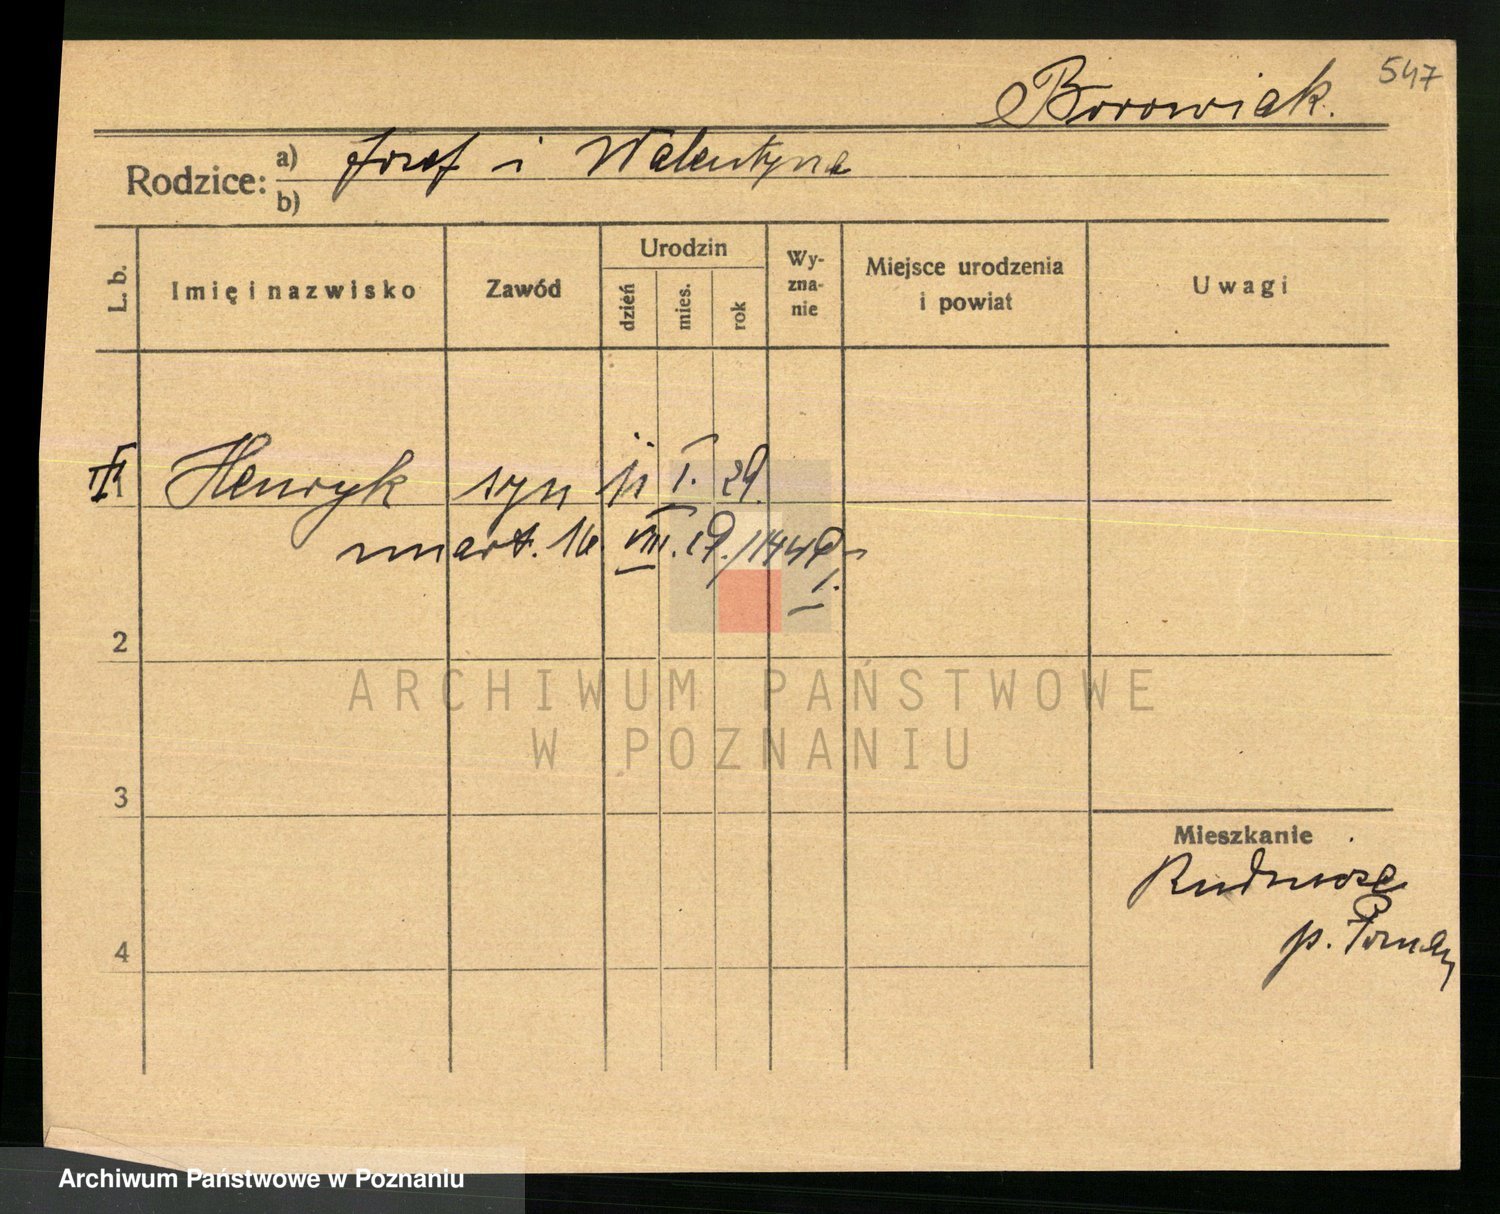 547
Borowiak.
Rodzice: a) Józef i Walentyna
b)
L. b. Imię i nazwisko Zawód Urodzin dzień mies. rok Wyznanie Miejsce urodzenia i powiat Uwagi
Henryk syn 11 I. 29.
umart. 16. VIII. 29.
2
3
4
Mieszkanie
Rudnicze
p. Poznań
ARCHIWUM PAŃSTWOWE
W POZNANIU
Archiwum Państwowe w Poznaniu